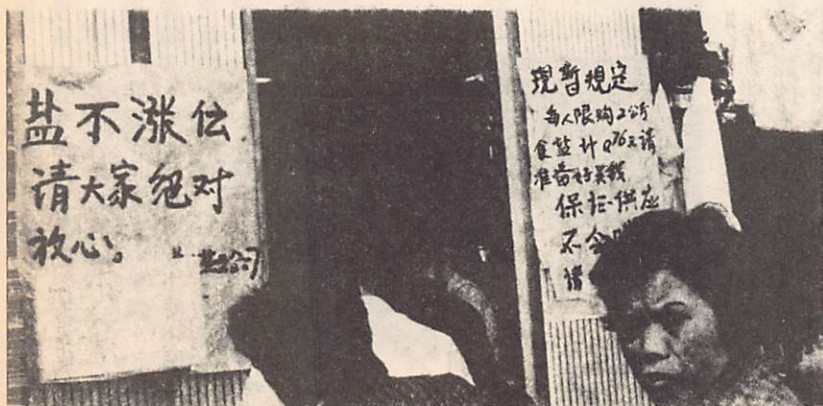 盐不涨价
请大家绝对
放心。
盐公司
现暂规定
每人限购2公斤
食盐计0.76元请
准备好零钱
保证供应
不会
请